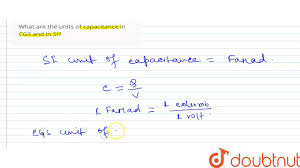 What are the units of capacitance in
CGS and in SI?
SI unit of capacitance = Farad.
C = Q/V
1 Farad = 1 columb / 1 volt.
CGS unit of
doubtnut